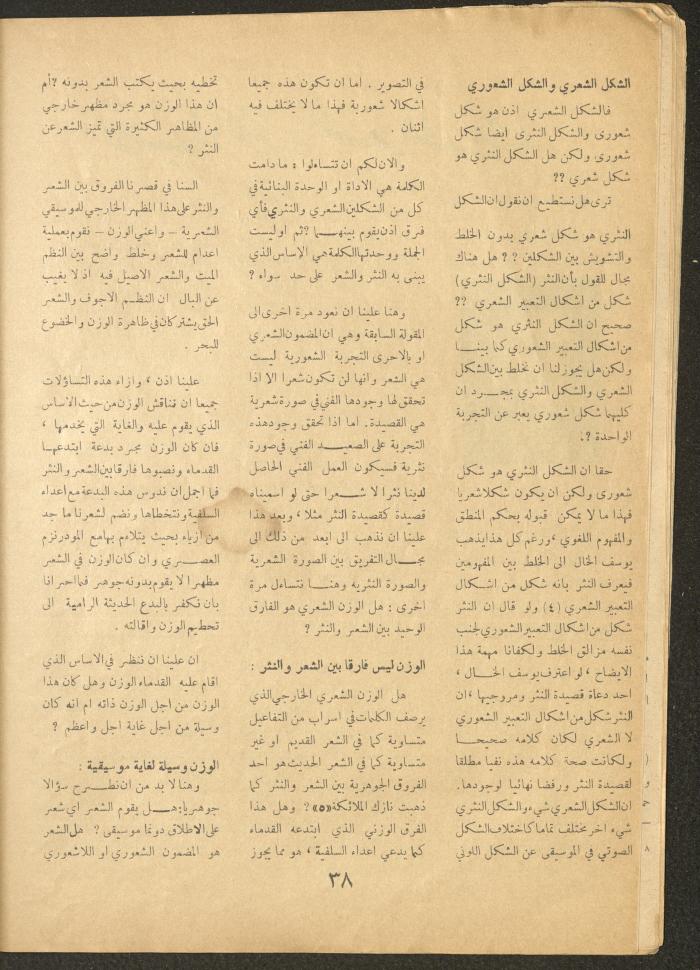 الشكل الشعري والشكل الشعوري
فالشكل الشعري اذن هو شكل
شعورى والشكل النثرى ايضا شكل
شعورى ولكن هل الشكل النثري هو
شكل شعري ؟؟
ترى هل نستطيع ان نقول ان الشكل
النثري هو شكل شعري بدون الخلط
والتشويش بين الشكلين ؟ ؟ هل هناك
مجال للقول بأن النثر (الشكل النثري)
شكل من اشكال التعبير الشعري ؟؟
صحيح ان الشكل النثري هو شكل
من اشكال التعبير الشعوري كما بينـــا
ولكن هل يجوز لنا ان نخلط بين الشكل
الشعري والشكل النثري بمجـــرد ان
كليهما شكل شعوري يعبر عن التجربة
الواحدة ؟.
حقا ان الشكل النثري هو شكل
شعورى ولكن ان يكون شكلا شعريا
فهذا ما لا يمكن قبوله بحكم المنطق
والمفهوم اللغوي ، ورغم كل هذا يذهب
يوسف الخال الى الخلط بين المفهومين
فيعرف النثر بانه شكل من اشكـال
التعبير الشعري (٤) ولو قال ان النثر
شكل من اشكال التعبير الشعوري لجنب
نفسه مزالق الخلط ولكفانا مهمة هذا
الايضاح ، لو اعترف يوسف الخـال ،
احد دعاة قصيدة النثر ومروجيها ، ان
النثر شكل من اشكال التعبير الشعوري
لا الشعري لكان كلامه صحيحـــا
ولكانت صحة كلامه هذه نفيا مطلقا
لقصيدة النثر ورفضا نهائيا لوجودها.
ان الشكل الشعري شيء والشكل النثري
شيء اخر مختلف تماما كاختلاف الشكل
الصوتي في الموسيقى عن الشكل اللوني
في التصوير . اما ان تكون هذه جميعا
اشكالا شعورية فهذا ما لا يختلف فيه
اثنان .
والان لكم ان تتساءلوا : ما دامت
الكلمة هي الاداة او الوحدة البنائية في
كل من الشكلين الشعري والنثري فأي
فرق اذن يقوم بينهـــما ؟ ثم او ليست
الجملة ووحدتها الكلمة هي الاساس الذي
يبنى به النثر والشعر على حد سواء ؟
وهنا علينا ان نعود مرة اخرى الى
المقولة السابقة وهي ان المضمون الشعري
او بالاحرى التجربة الشعورية ليست
هي الشعر وانها لن تكون شعرا الا اذا
تحقق لها وجودها الفني في صورة شعرية
هي القصيدة. اما اذا تحقق وجود هذه
التجربة على الصعيـــد الفني في صورة
نثرية فسيكون العمل الفني الحاصل
لدينا نثرا لا شـــعرا حتى لو اسميناه
قصيدة كقصيدة النثر مثلا ، وبعد هذا
علينا ان نذهب الى ابعد من ذلك الى
مجـــال التفريق بين الصورة الشعرية
والصورة النثريه وهنـــا نتساءل مرة
اخرى : هل الوزن الشعري هو الفارق
الوحيد بين الشعر والنثر ؟
الوزن ليس فارقا بين الشعر والنثر :
هل الوزن الشعري الخارجي الذي
يرصف الكلمات في اسراب من التفاعيل
متساوية كما في الشعر القديم او غير
متساوية كما في الشعر الحديث هو احد
الفروق الجوهرية بين الشعر والنثر كما
ذهبت نازك الملائكة «٥» ؟ وهل هذا
الفرق الوزني الذي ابتدعه القدماء
كما يدعي اعداء السلفية ، هو مما يجوز
تخطيه بحيث يكتب الشعر بدونه ؟ أم
ان هذا الوزن هو مجرد مظهر خارجي
من المظاهر الكثيرة التي تميز الشعر عن
النثر ؟
السنا في قصرنا الفروق بين الشعر
والنثر على هذا المظهر الخارجي للموسيقي
الشعرية – واعني الوزن – نقوم بعملية
اعدام للشعر وخلط واضح بين النظم
الميت والشعر الاصيل فيه اذ لا يغيب
عن البال ان النظـم الاجوف والشعر
الحق يشتركان في ظاهرة الوزن والخضوع
للبحر .
علينا اذن ، وازاء هذه التساؤلات
جميعا ان نناقش الوزن من حيث الاساس
الذي يقوم عليه والغاية التي يخدمها ،
فان كان الوزن مجرد بدعة ابتدعهـا
القدماء ونصبوها فارقا بين الشعر والنثر
فما اجمل ان ندوس هذه البدعة مع اعداء
السلفية ونتخطاها ونضم لشعرنا ما جد
من ازياء بحيث يتلاءم بهامع المودرنزم
العصـــري وان كان الوزن في الشعر
مظهرا لا يقوم بدونه جوهر فما احرانا
بان نكفر بالبدع الحديثة الرامية الى
تحطيم الوزن واقالته .
ان علينا ان ننظر في الاساس الذي
اقام عليه القدماء الوزن وهل كان هذا
الوزن من اجل الوزن ذاته ام انه كان
وسيلة من اجل غاية اجل واعظم ؟
الوزن وسيلة لغاية موسيقية :
وهنا لا بد من ان نطـــرح سؤالا
جوهريا : هـــل يقوم الشعر اي شعر
على الاطلاق دونما موسيقى ؟ هل الشعر
هو المضمون الشعوري او اللاشعوري
٣٨